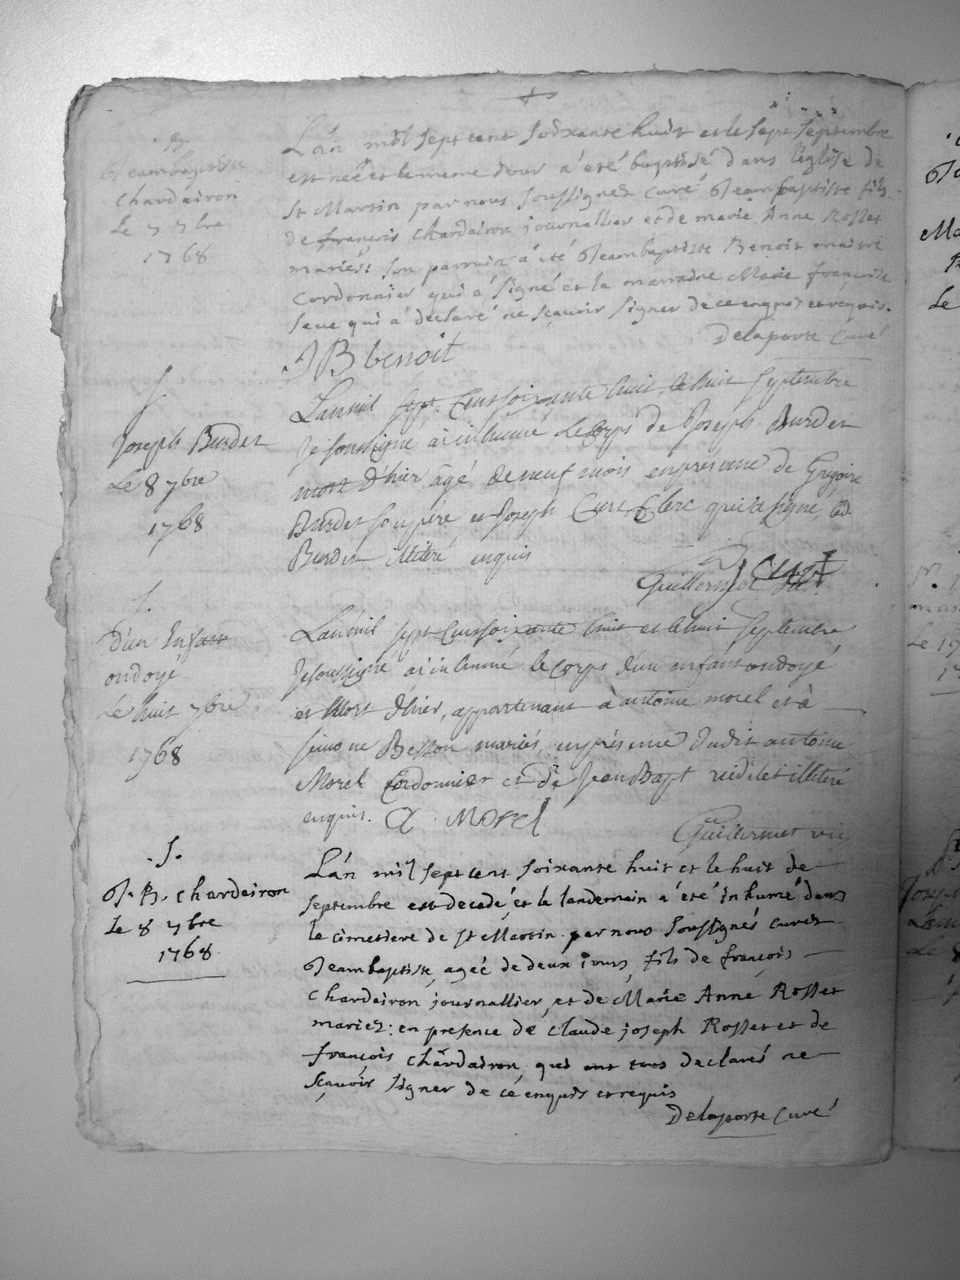 Jeambaptiste
chardairon
Le 7 7bre
1768
L'an mil sept cent soixante huit et le sept septembre
est né et le meme jour a été baptisé dans l'église de
St Martin par nous soussignez curé Jeambaptiste fils
de françois chardairon journallier et de marie Anne Rosset
mariés: son parrain a été Jeambaptiste Benoit maitre
Cordonnier qui a signé et la marraine Marie françoise
qui a déclaré ne sçavoir signer de ce enquis et requis.
Delaporte Curé
JB benoit
Joseph Burdet
Le 8 7bre
1768
L'an mil sept Cent soixante huit, le huit Septembre
Je soussigné ai inhumé Le Corps de Joseph Burdet
mort d'hier âgé de neuf mois en présence de Grégoire
Burdet son père et Joseph Clerc qui a signé, led
Burdet illitéré enquis
Guillermet J Clerc
D'un Enfant
ondoyé
Le huit 7bre
1768
L'an mil sept Cent soixante huit et le huit Septembre
Je soussigné ai inhumé le Corps d'un enfant ondoyé
et Mort d'hier, appartenant à antoine morel et à
simone Besson mariés, en présence dudit antoine
Morel Cordonier et de Jean Bapt illitéré
enquis. A MOREL
Guillermet vic
J. B. chardairon
Le 8 7bre
1768
L'an mil sept cent soixante huit et le huit de
septembre est decedé et le landemain a été inhumé dans
le cimetiere de St Martin par nous soussignés curez
Jeambaptiste ageé de deux jours fils de françois
Chardairon journallier et de Marie Anne Rosset
mariez: en presence de claude joseph Rosset et de
françois chardairon, qui ont tous declarés ne
sçavoir signer de ce enquis et requis
Delaporte Curé